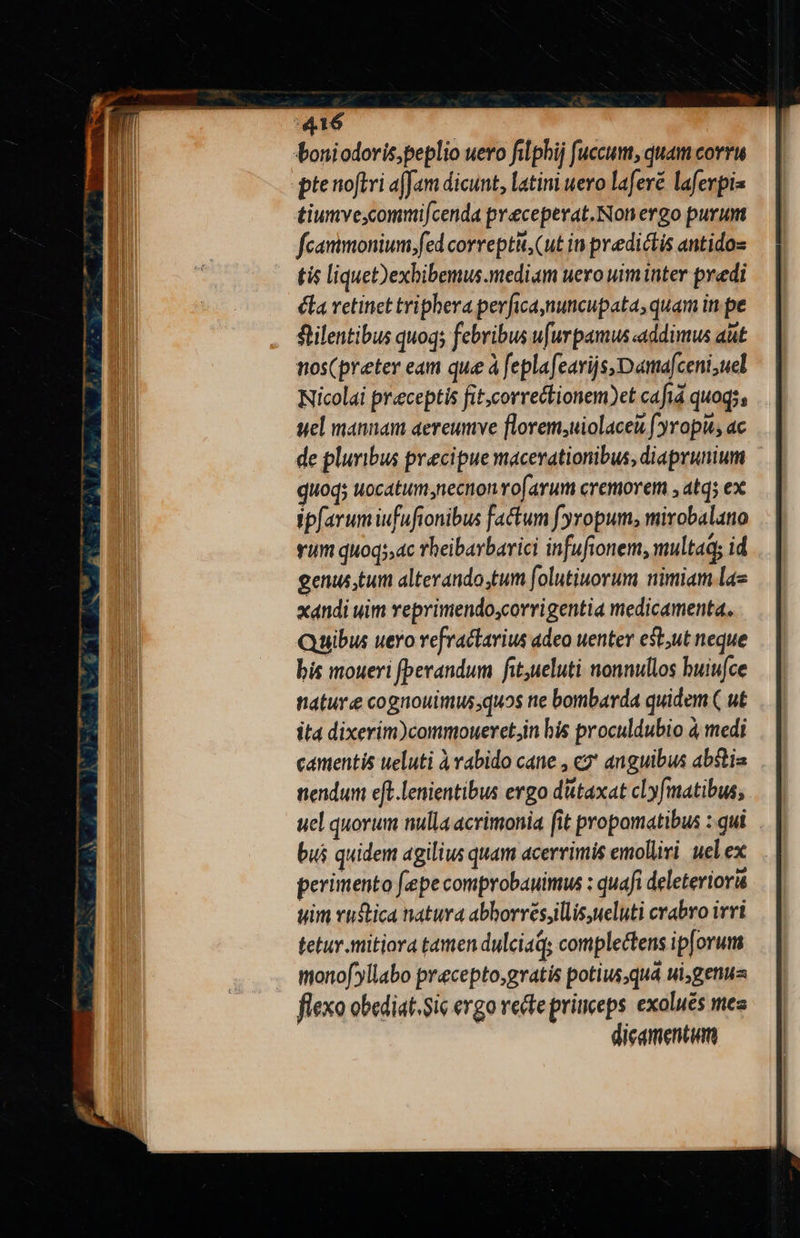 416
boni odoris,peplio uero ſilphij ſuccum, quam corru
pte noſtri aſſam dicunt, latini uero laſerē laſerpi⸗
tiumve,commiſcenda præceperat.Non ergo purum
ſcammonium,ſed correptū,(ut in prædictis antido⸗
tis liquet)exhibemus.mediam uero uim inter prædi
cta retinet triphera perſica,nuncupata, quam in pe
ſtilentibus quoq; febribus uſurpamus.addimus aūt
nos(præter eam quæ à ſeplaſearijs,Damaſceni,uel
Nicolai præceptis fit,correctionem)et caſiā quoq;,
uel mannam aereumve florem,uiolaceū ſyropū, ac
de pluribus præcipue macerationibus, diaprunium
quoq; uocatum,necnon roſarum cremorem , atq; ex
ipſarum iufuſionibus factum ſyropum, mirobalano
rum quoq;,ac rheibarbarici infuſionem, multaq́; id
genus,tum alterando,tum ſolutiuorum nimiam la⸗
xandi uim reprimendo,corrigentia medicamenta.
Quibus uero refractarius adeo uenter eſt,ut neque
his moueri ſperandum ſit,ueluti nonnullos huiuſce
naturæ cognouimus,quos ne bombarda quidem ( ut
ita dixerim)commoueret,in his proculdubio à medi
camentis ueluti à rabido cane , & anguibus abſti⸗
nendum eſt.lenientibus ergo dūtaxat clyſmatibus,
uel quorum nulla acrimonia ſit propomatibus : qui
bus quidem agilius quam acerrimis emolliri uel ex
perimento ſæpe comprobauimus : quaſi deleteriorū
uim ruſtica natura abhorrēs,illis,ueluti crabro irri
tetur.mitiora tamen dulciaq́; complectens ipſorum
monoſyllabo præcepto,gratis potius,quā ui,genu⸗
flexo obediat.Sic ergo recte princeps exoluēs me⸗
dicamentum